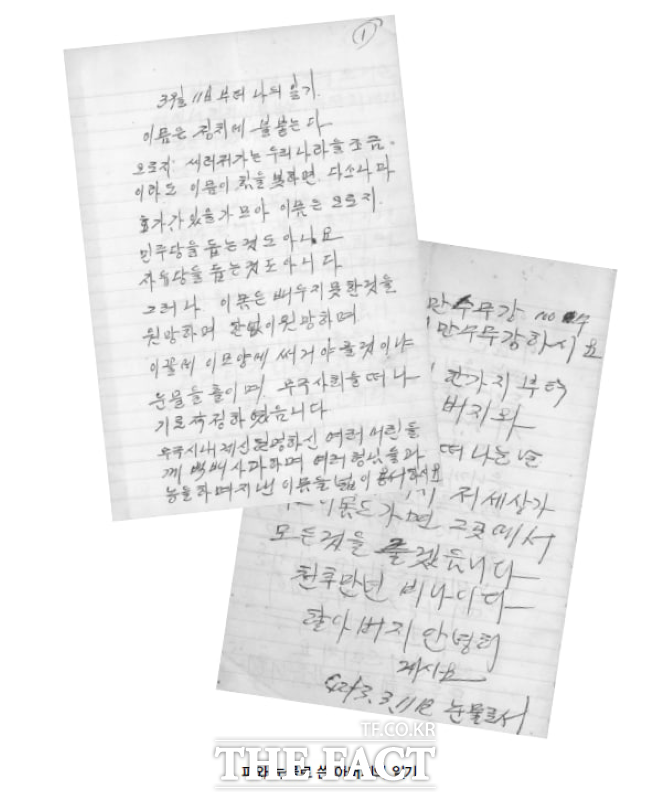 ①
3월 11일부터 나의 일기.
이몸은 정치에 불붙는다
오로지 쓰러져가는 우리나라를 조금.
이라도 이몸이 힘을 못하면 다소나마
효가가 있을가 모아 이몸은 오로지.
민주당을 돕는것도 아니요
자유당을 돕는것도 아니다
그러나 이몸은 배우지못한것을
원망하며 한없이 원망하며
이꼴에 이모양에 써거야 을것이냐
눈물을 흘이며, 무주사회를 떠나
기로 작정하였읍니다
무주시내 제신 하신 여러 어린들
께 백배사과하며 여러형님들과
농을하며 지낸 이몸을 널이 용서하시요
만수무강 no
만수무강하시요
한가지 부탁
버지와
떠나는 난
저세상가
이몸도 가면 그곳에서
모든것을 겠읍니다
천추만년 비나이다
할아버지 안녕히
계시요
4293.3.11日 눈물로서
TF.CO.KR
THE FACT